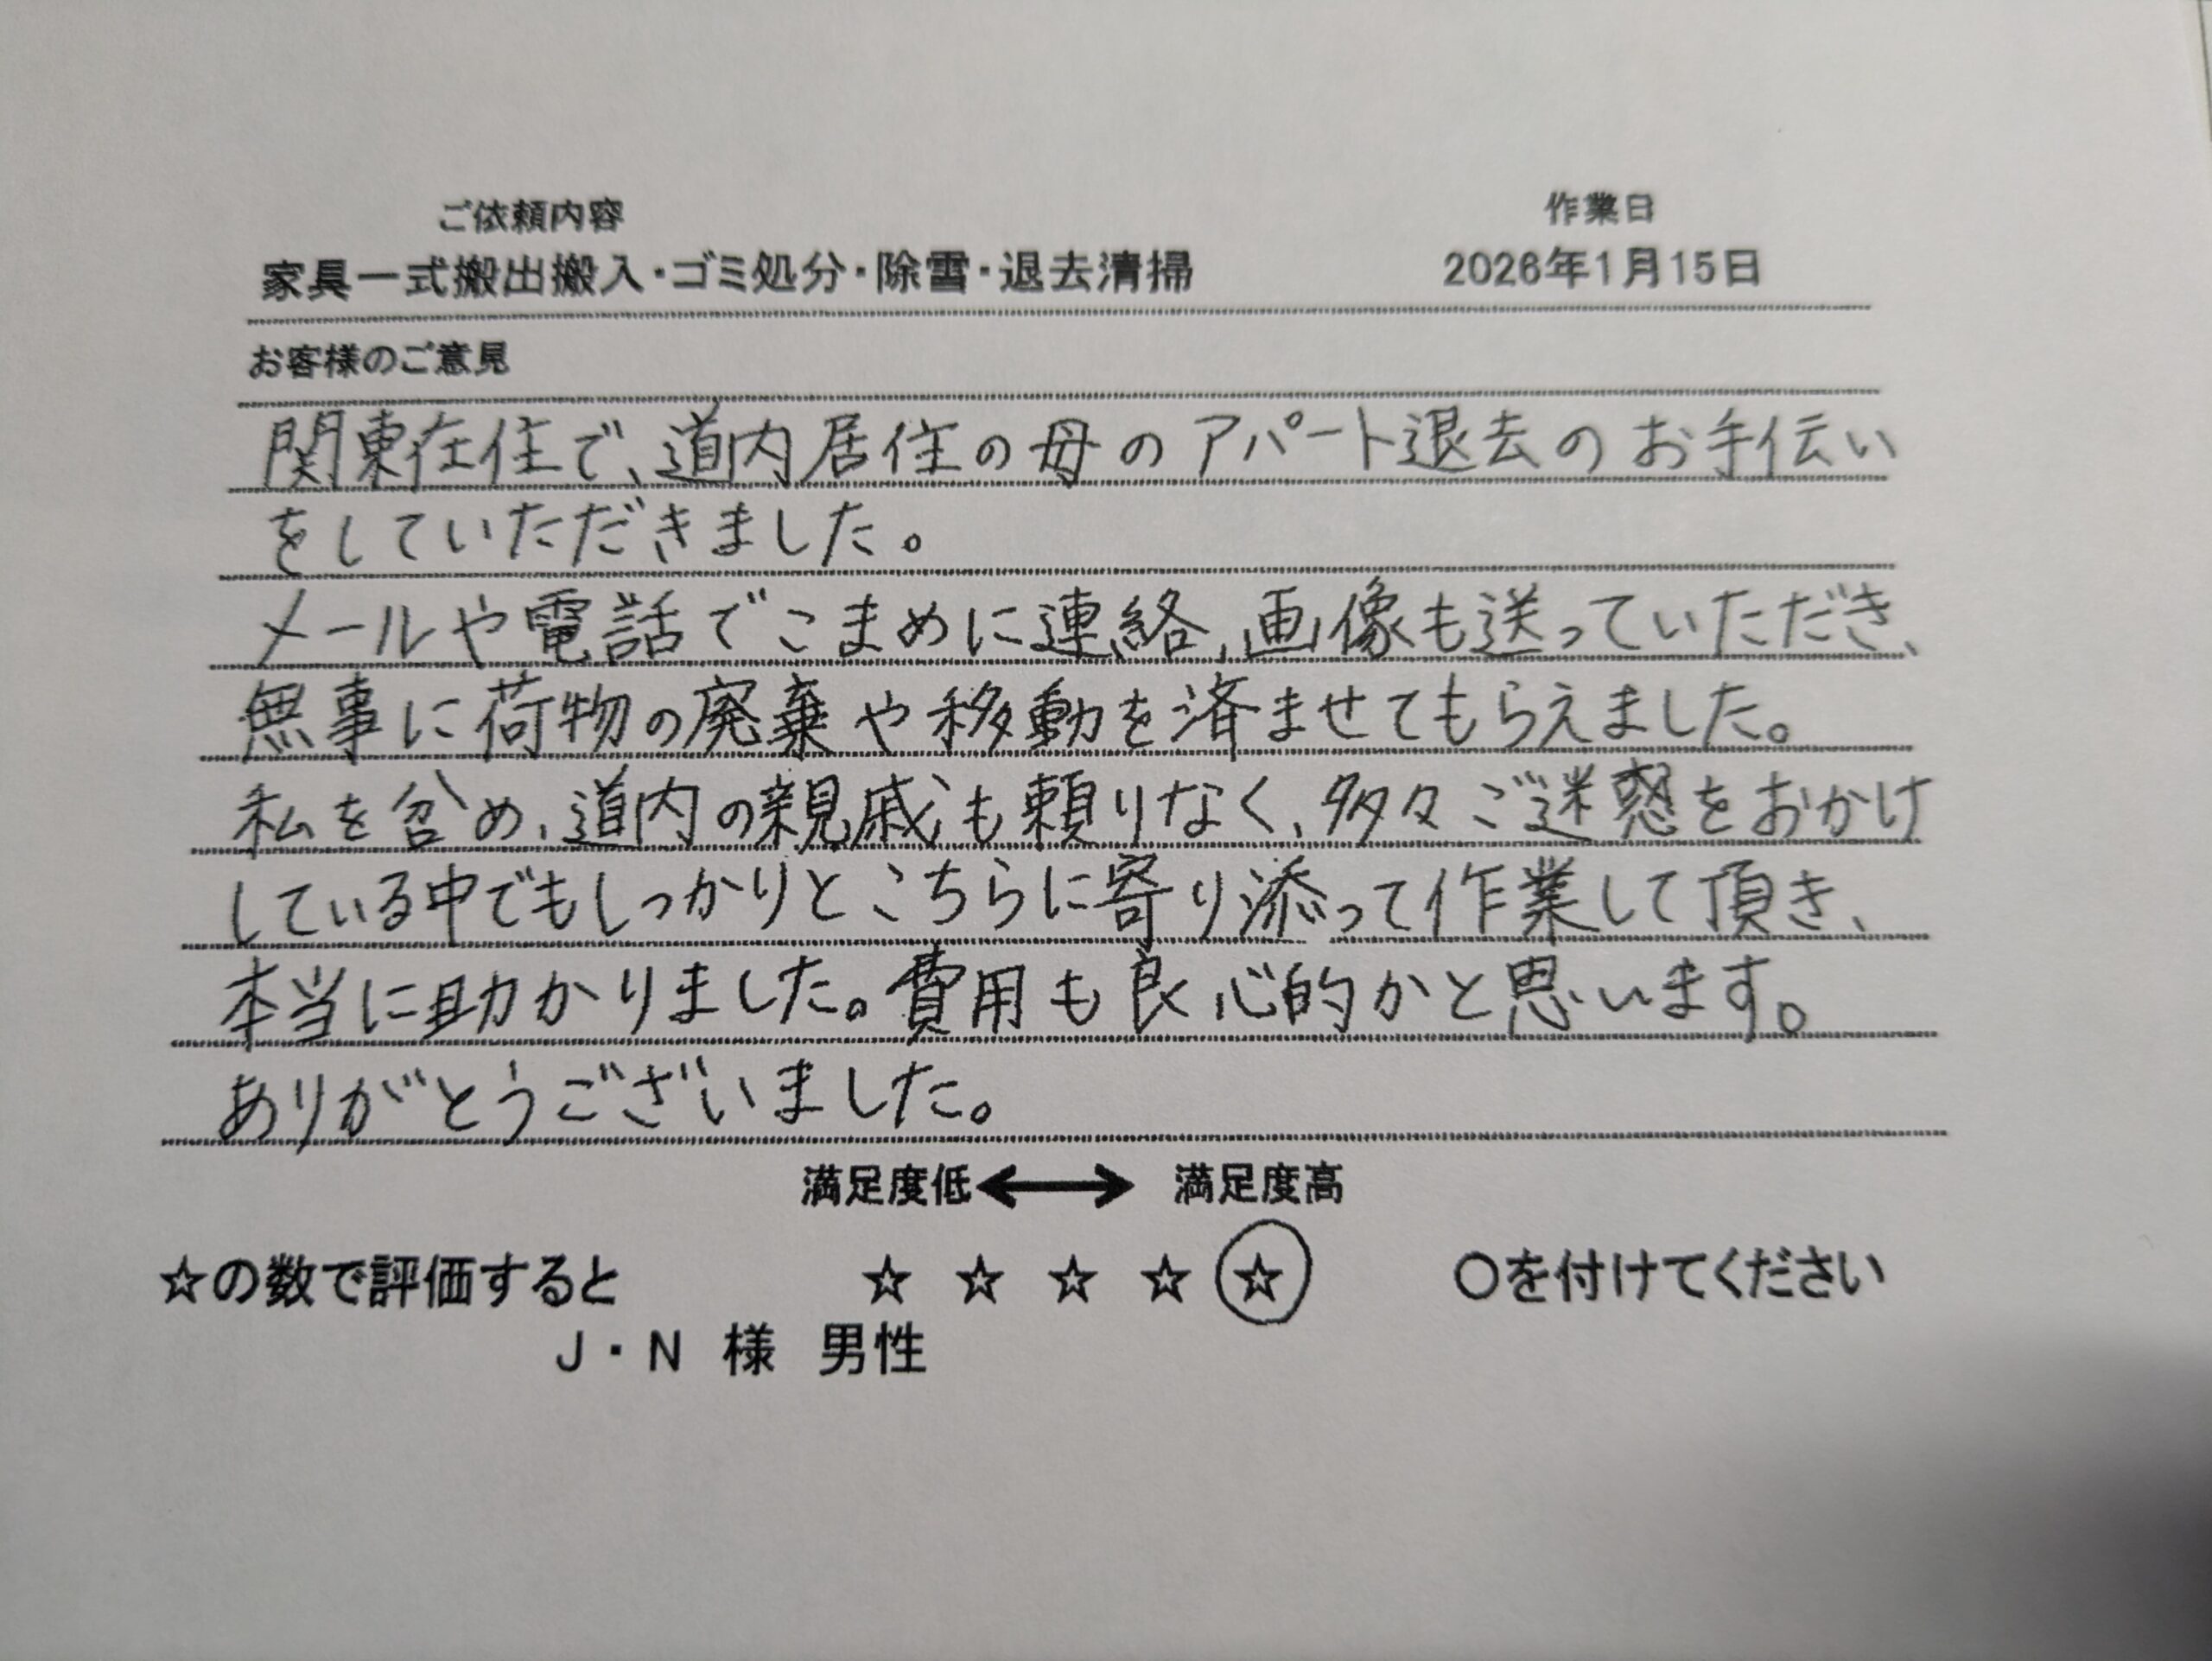 ご依頼内容
作業日
家具一式搬出搬入・ゴミ処分・除雪・退去清掃
2026年1月15日
お客様のご意見
関東在住で、道内居住の母のアパート退去のお手伝い
をしていただきました。
メールや電話でこまめに連絡、画像も送っていただき、
無事に荷物の廃棄や移動を済ませてもらえました。
私を含め、道内の親戚も頼りなく、多々ご迷惑をおかけ
している中でもしっかりとこちらに寄り添って作業して頂き、
本当に助かりました。費用も良心的かと思います。
ありがとうございました。
満足度低 ⟷ 満足度高
☆の数で評価すると ☆ ☆ ☆ ☆ ☆ ○を付けてください
J・N 様 男性